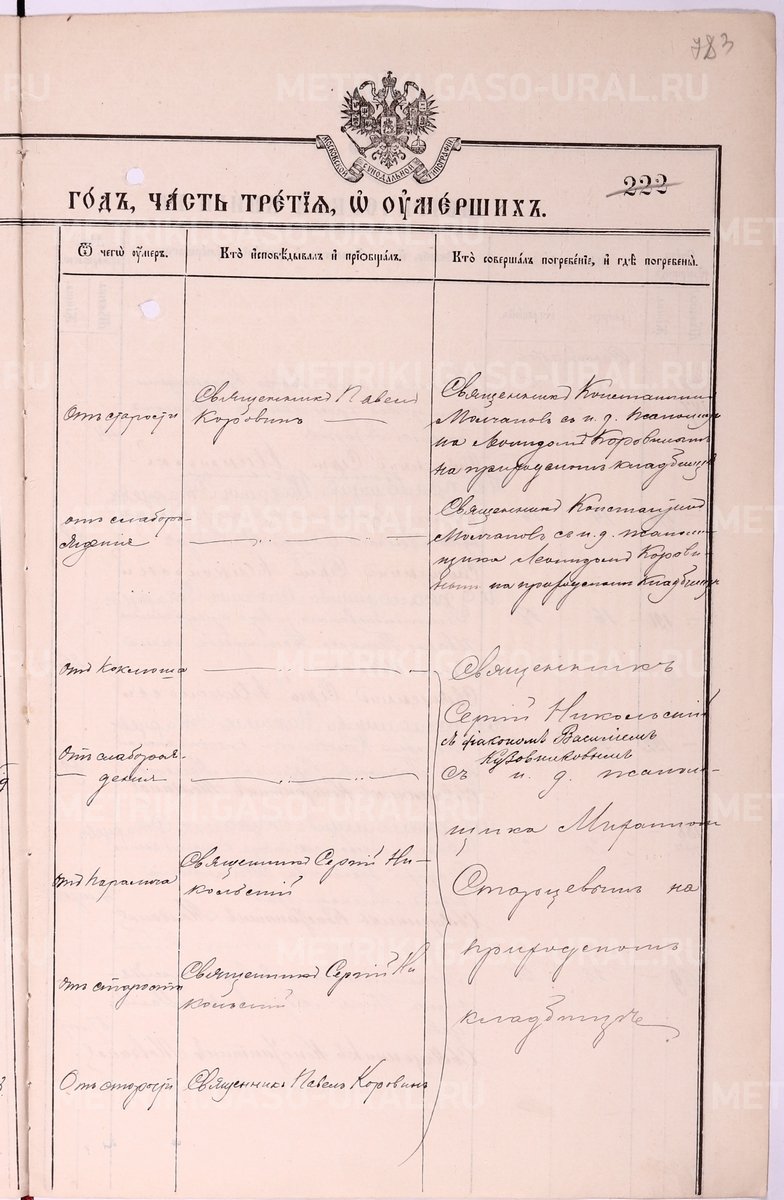 783
METRIKI.GASO-URAL.RU
МОСКОВСКОЙ СѴНОДАЛЬНОЙ ТИПОГРАФІИ
222
ГО́ДЪ, ЧА́СТЬ ТРЕ́ТІѦ, Ѡ҆ ОУ҆МЕ́РШИХЪ.
Ѿ чегѡ̀ оу҆́меръ.
Кто̀ и҆сповѣ́дывалъ и҆ прїѡбща́лъ.
Кто̀ соверша́лъ погребе́нїе, и҆ гдѣ̀ погребены̀.
Отъ старости
Священникъ Павелъ
Коровинъ
Священникъ Константинъ
Молчановъ съ и. д. псаломщи
ка Леонидомъ Коровинымъ
на приходскомъ кладбищѣ
отъ слаборо-
жденія
Священникъ Константинъ
Молчановъ съ и. д. псалом-
щика Леонидомъ Корови-
нымъ на приходскомъ кладбищѣ
отъ Коклюша
Священникъ
Сергій Никольскій
съ діакономъ Василіемъ
Кузовниковымъ
съ и. д. псалом-
щика
Старцевымъ на
приходскомъ
кладбищѣ
Отъ слаборож-
денія
отъ Паралича
Священникъ Сергій Ни-
кольскій
отъ старости
Священникъ Сергій Ни
кольскій
Отъ старости
Священникъ Павелъ Коровинъ